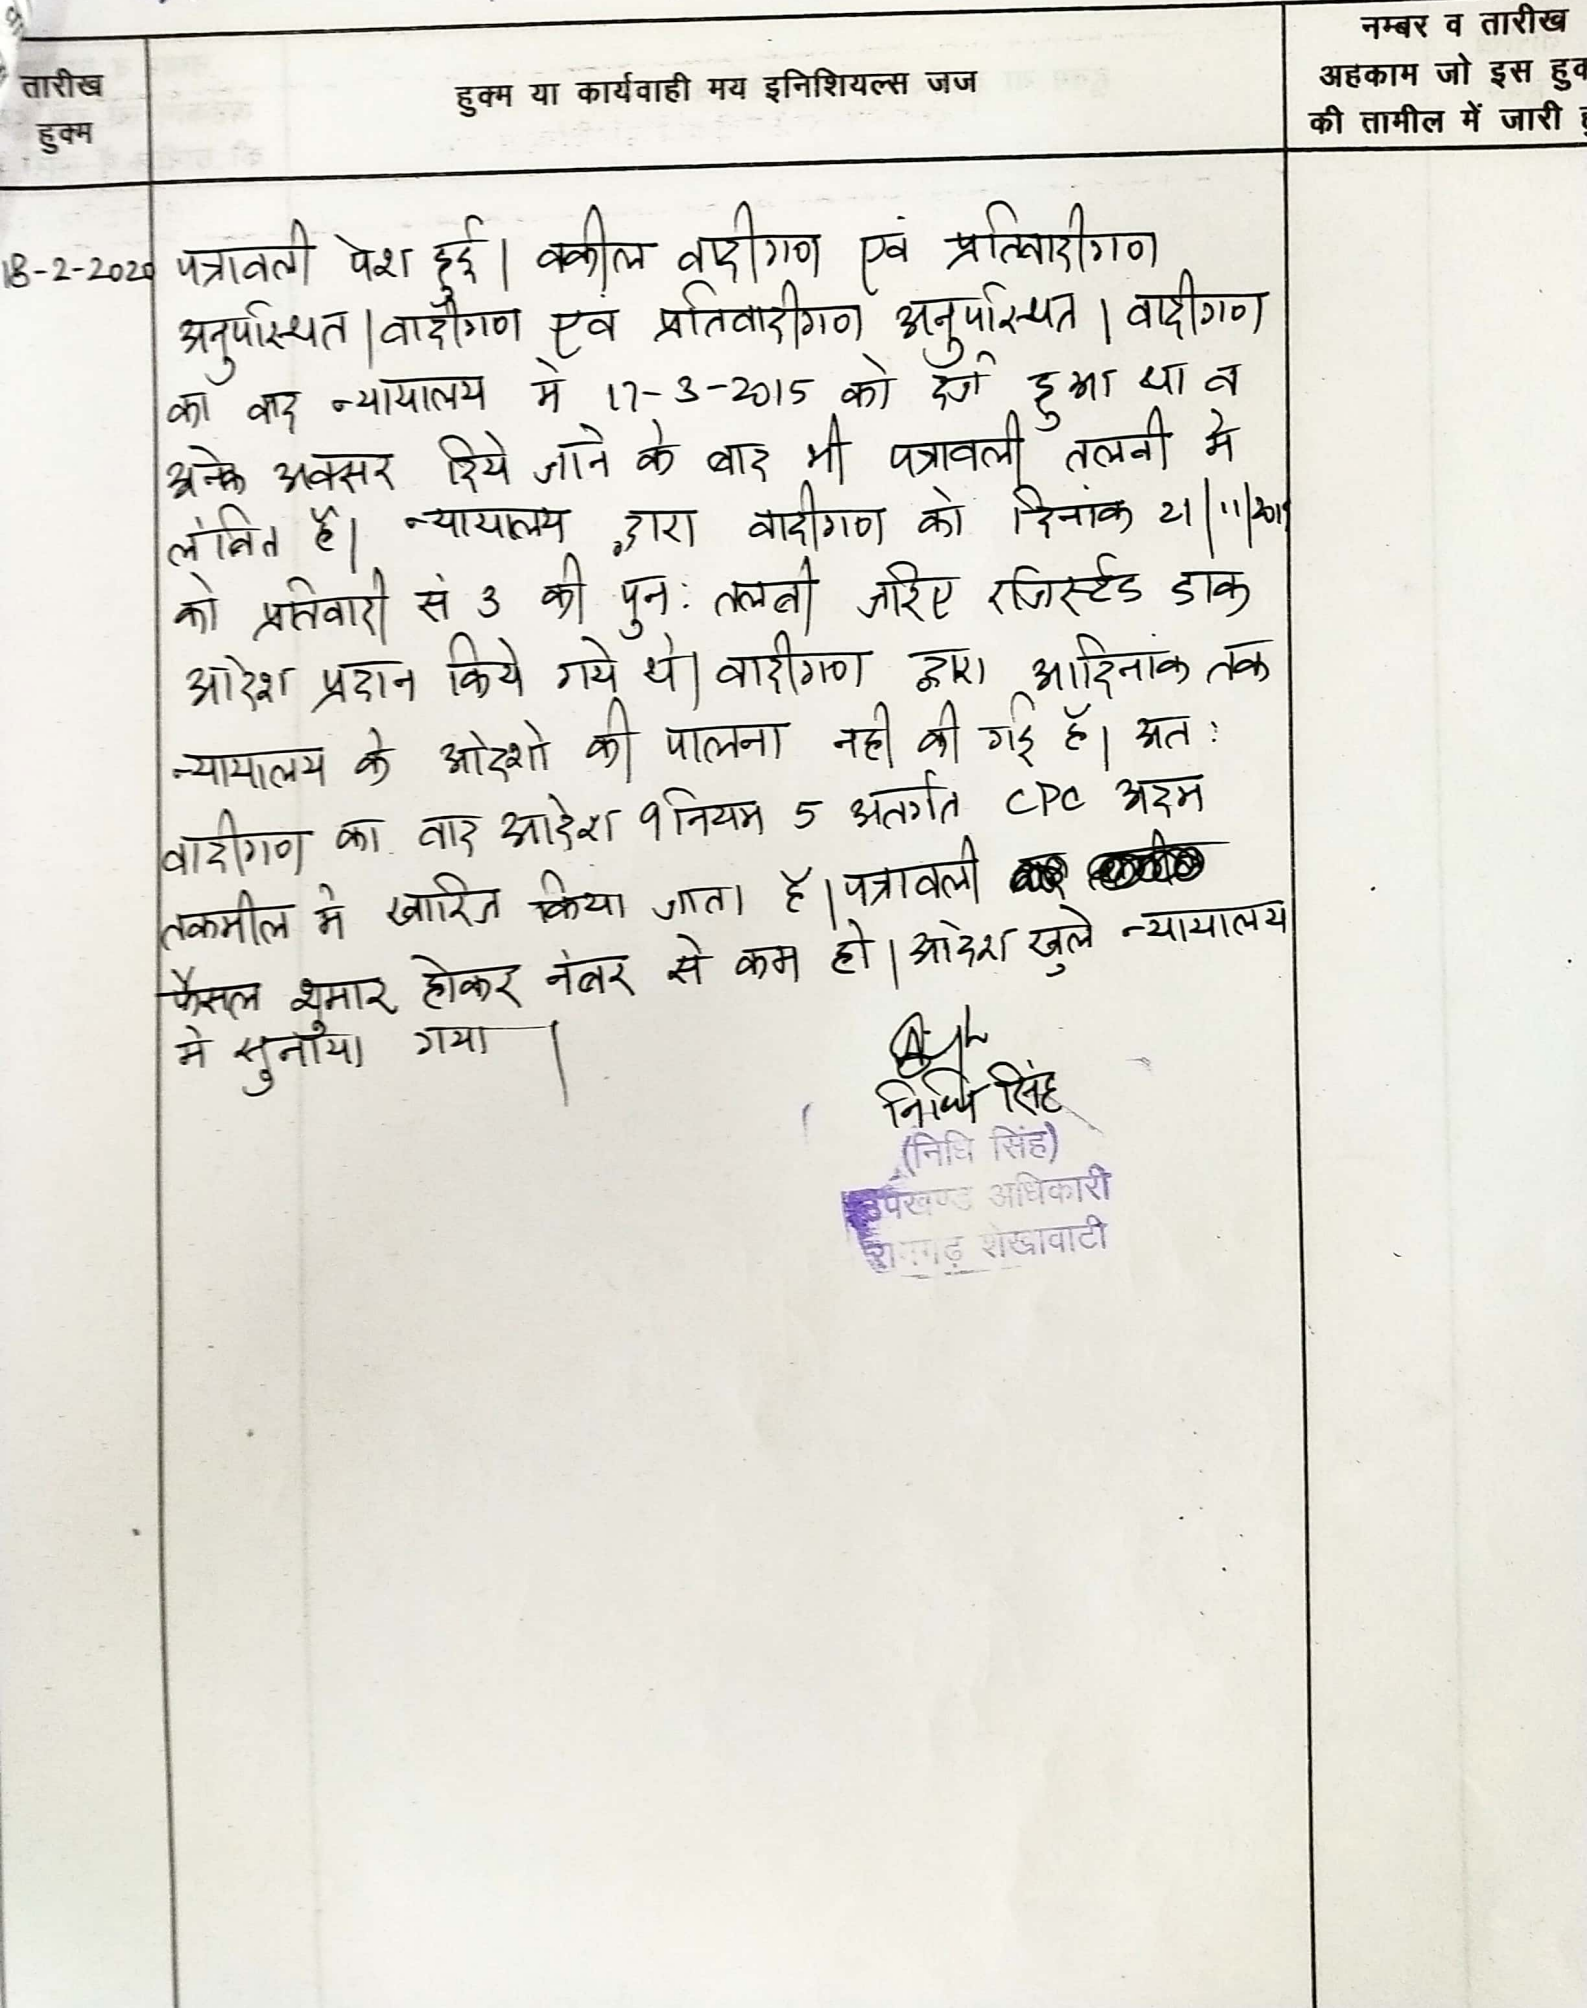 तारीख
हुक्म
हुक्म या कार्यवाही मय इनिशियल्स जज
नम्बर व तारीख
अहकाम जो इस हुक
की तामील में जारी
18-2-2020 पत्रावली पेश हुई। वकील वादीगण एवं प्रतिवादीगण
अनुपस्थित। वादीगण एवं प्रतिवादीगण अनुपस्थित। वादीगण
का वाद न्यायालय मे 17-3-2015 को दर्ज हुआ था व
अनेक अवसर दिये जाने के बाद भी पत्रावली तलबी मे
लंबित है। न्यायालय द्वारा वादीगण को दिनांक 21/11/2019
को प्रतिवादी सं 3 की पुन: तलबी जरिए रजिस्टर्ड डाक
आदेश प्रदान किये गये थे। वादीगण द्वारा आदिनांक तक
न्यायालय के आदेशो की पालना नही की गई है। अत:
वादीगण का वाद आदेश 9 नियम 5 अतर्गत CPC अदम
तकमील मे खारिज किया जाता है। पत्रावली
फैसल शुमार होकर नंबर से कम हो। आदेश खुले न्यायालय
मे सुनाया गया।
निधि सिंह
(निधि सिंह)
उपखण्ड अधिकारी
रामगढ़ शेखावाटी